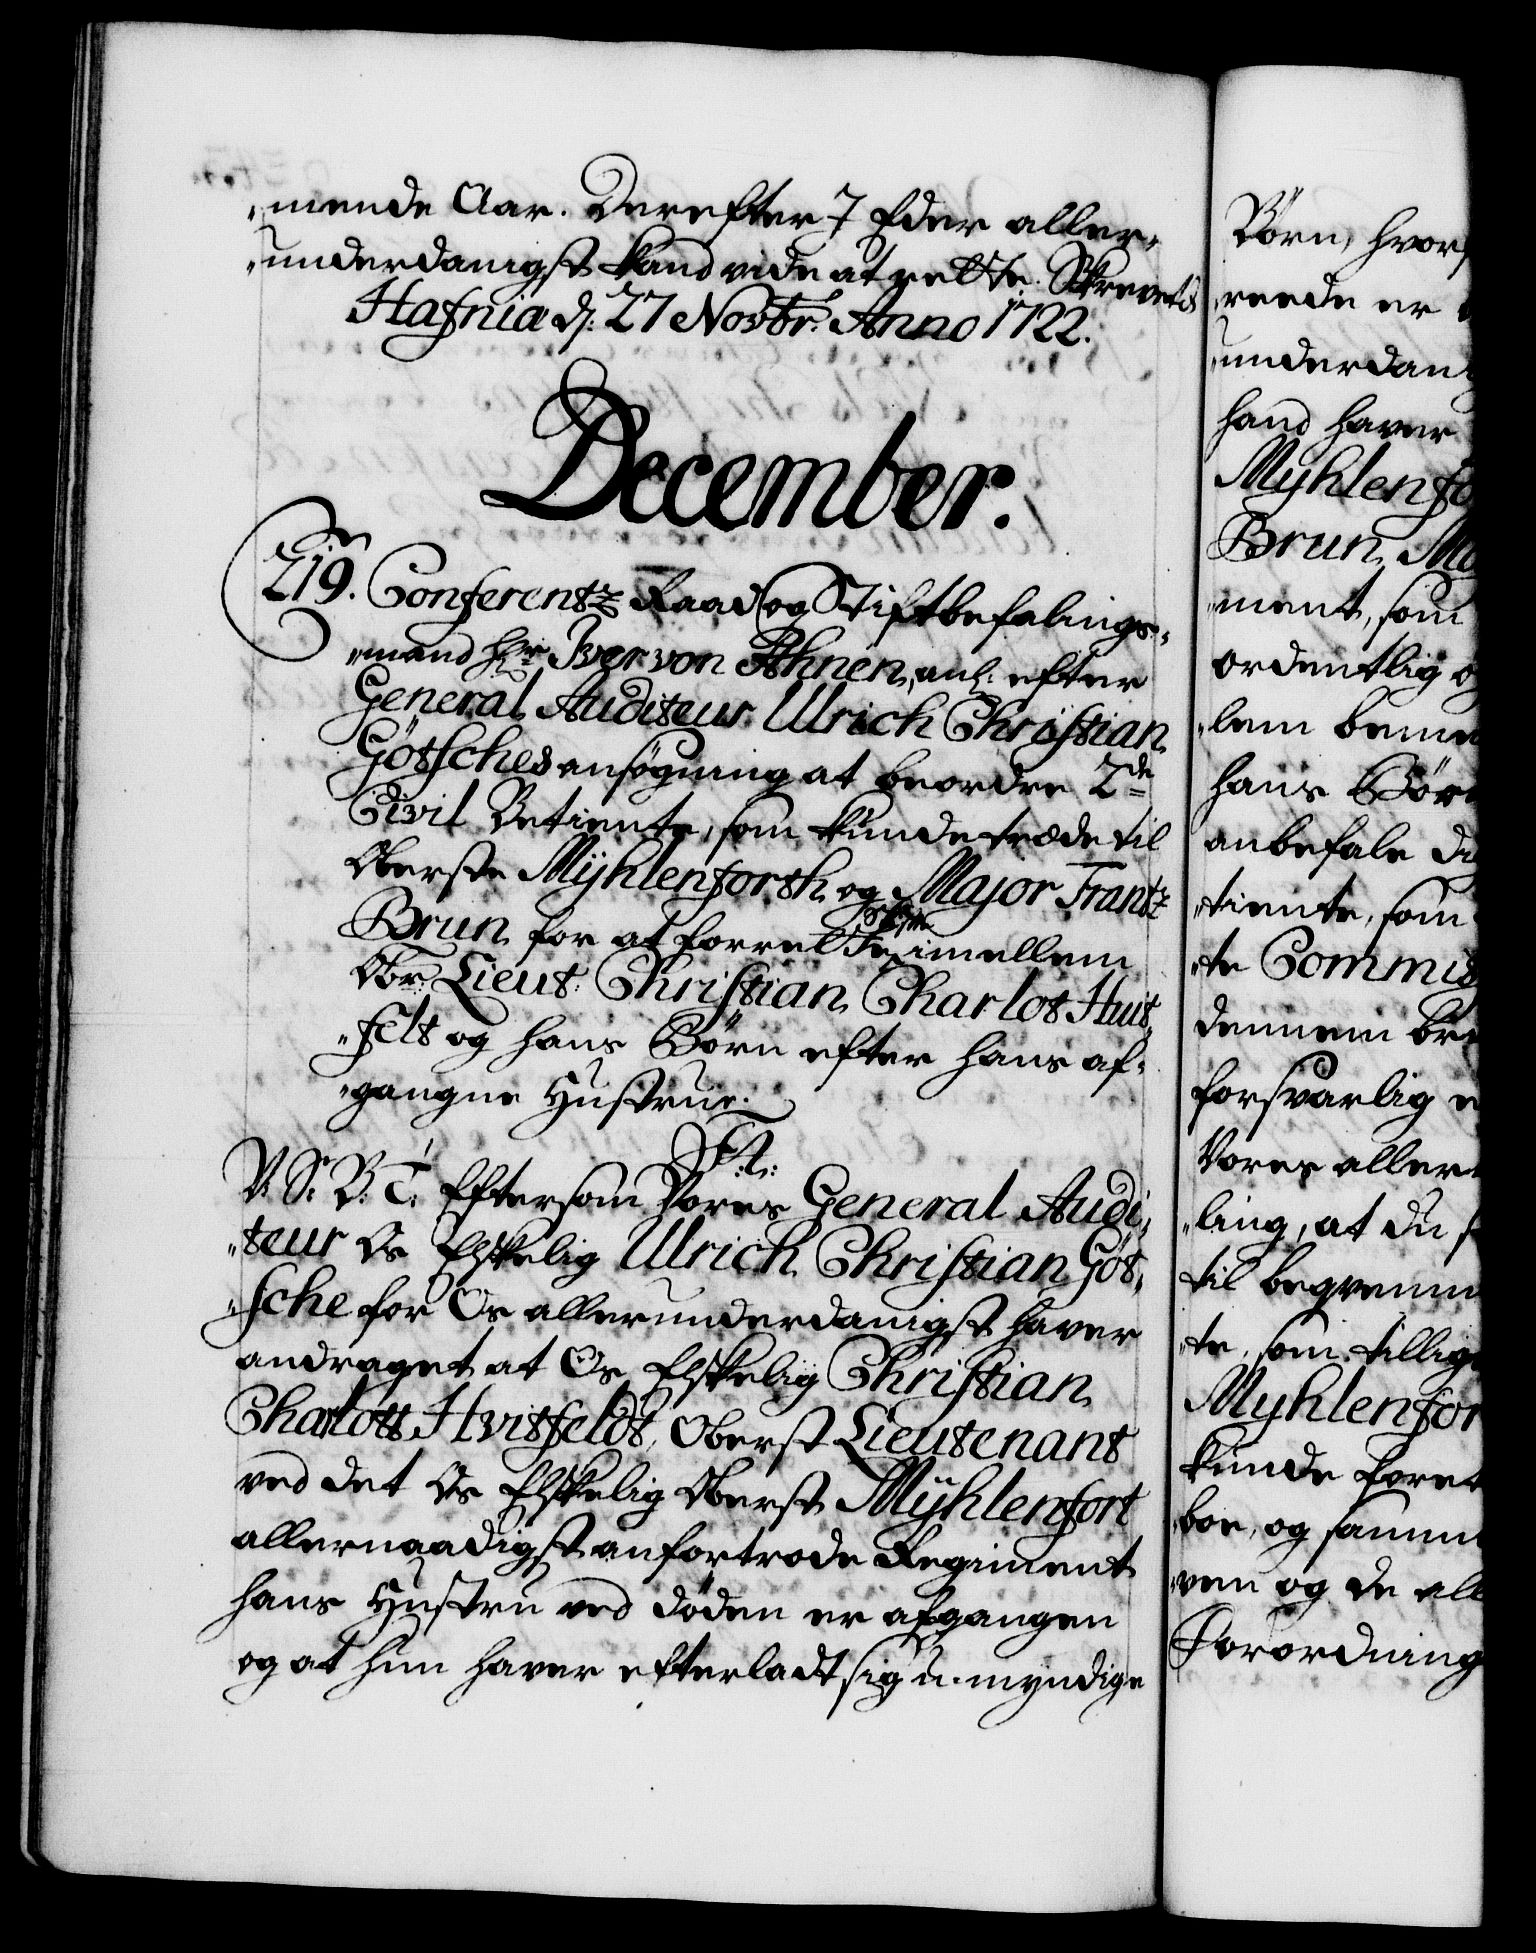 „mende Aar. Derefter I Eder aller-
„underdanigst kand vide at rette. Skrevet
Hafniæ d: 27 Novbr: Anno 1722.
December.
219. Conferentz Raad og Stiftbefalings-
„mand Hr: Iver von Ahnen, anl: efter
General Auditeur Ulrich Christian
Götsches ansøgning at beordre 2de
Civil Betiente, som kunde træde til
Oberste Mÿhlenforth og Major Frantz
Brun for at forrette Skifte imellem
Obr: Lieut: Christian Charlot Huit-
„felt og hans Börn efter hans af-
„gangne Hustrue.
F: 4:
V: S: B: T: Eftersom Vores General Audi-
„teur Os Elskelig Ulrich Christian Göt-
„sche for Os allerunderdanigst haver
andraget at Os Elskelig Christian
Charlott Hvitfeldt, Oberst Lieutenant
ved det Os Elskelig Oberst Mÿhlenfort
allernaadigst anfortrode Regiment
hans Hustru ved døden er afgangen
og at hun haver efterladt sig u-myndige
Börn, hvor
„reede er
„underdan
hand haver
Myhlenfo
Brun, Ma
„ment, som
ordentlig o
„lem beme
hans Bör
anbefale di
„tiente, som
„te Commis
dennem br
forsvarlig
Vores aller
„ling, at du
til beqvemm
„te, som tillig
Myhlenfor
kunde foret
„boe, og samm
„ven og de all
Forordning